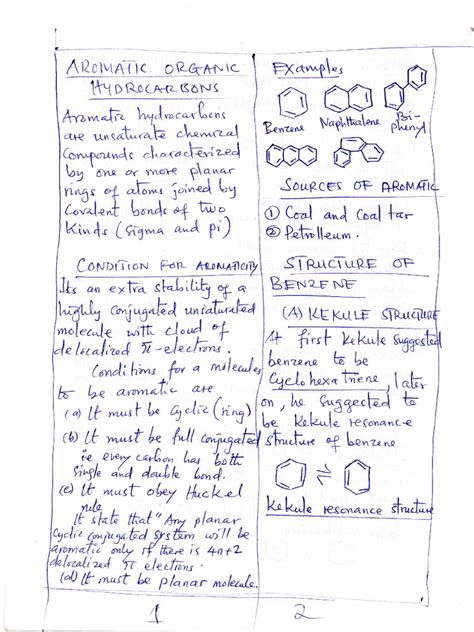 AROMATIC ORGANIC
HYDROCARBONS
Aromatic hydrocarbons
are unsaturate chemical
compounds characterized
by one or more planar
rings of atoms joined by
Covalent bonds of two
Kinds (sigma and pi)
CONDITION FOR AROMATICITY
Its an extra stability of a
highly conjugated unsaturated
molecule with cloud of
delocalized π-electrons.
Conditions for a molecules
to be aromatic are
(a) It must be Cyclic (ring)
(b) It must be full conjugated
ie every carbon has both
single and double bond.
(c) It must obey Huckel
rule
It state that "Any planar
Cyclic conjugated system will be
aromatic only if there is 4n+2
delocalized π electrons.
(d) It must be planar molecule.
1
Examples
Benzene Naphthalene Bi-
phenyl
SOURCES OF AROMATIC
① Coal and coal tar
② Petrolleum.
STRUCTURE OF
BENZENE
(A) KEKULE STRUCTURE
At first Kekule suggested
benzene to be
Cyclohexatriene, later
on, he suggested to
be Kekule resonance
structure of benzene
⇌
Kekule resonance structure
2